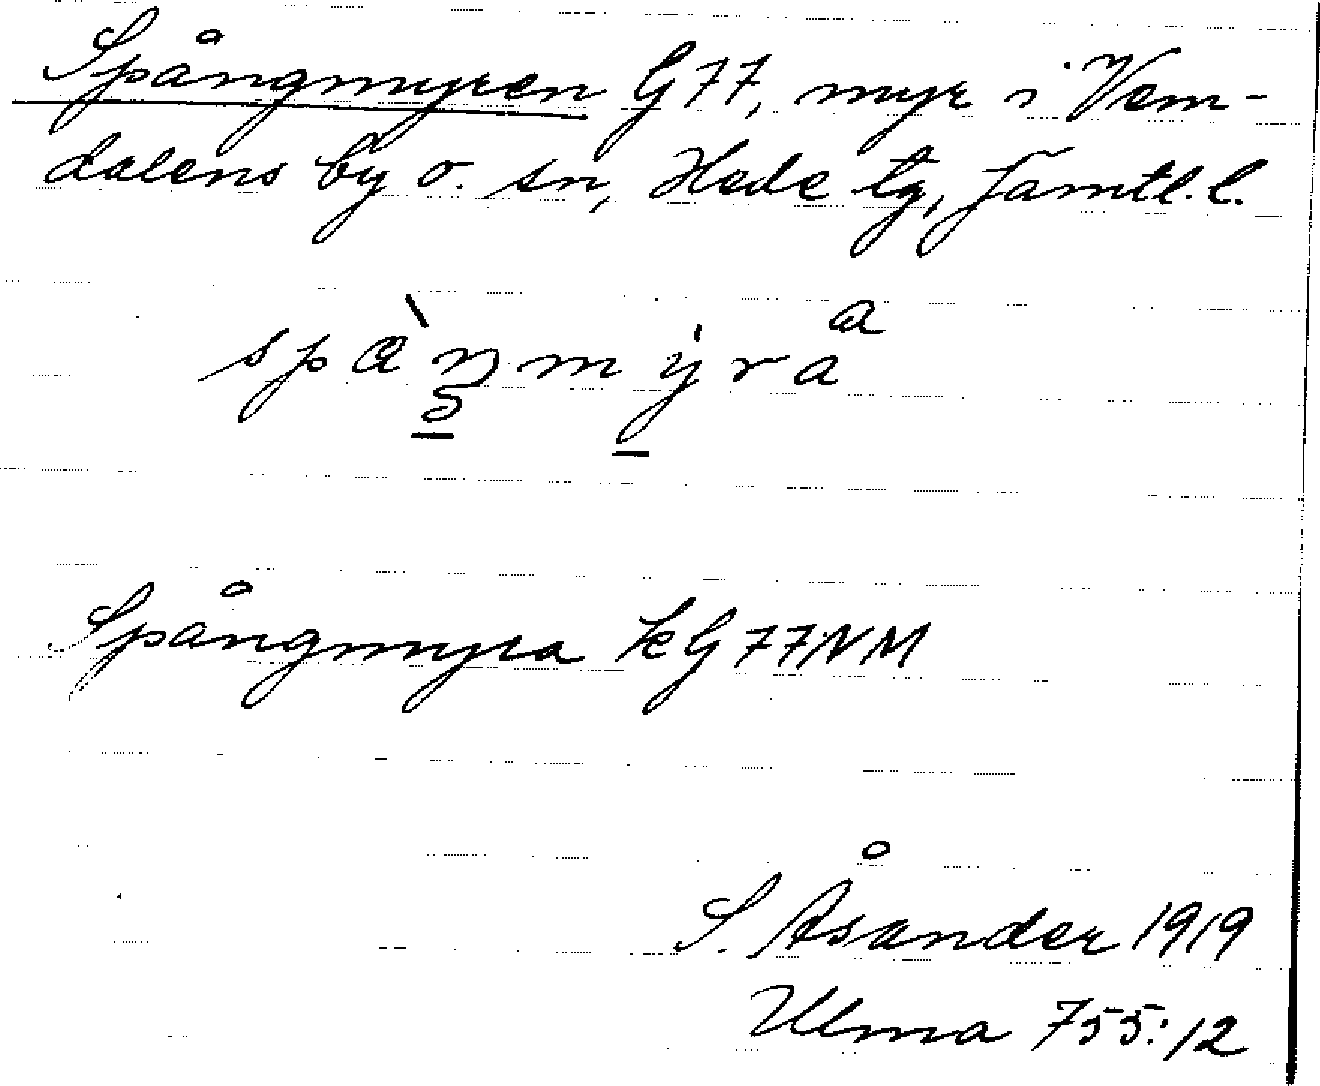 Spångmyren G77, myr i Vem-
dalens by o. sn, Hede tg, Jämtl. l.
Spångmyra kG77NM
S. Åsander 1919
Ulma 755:12